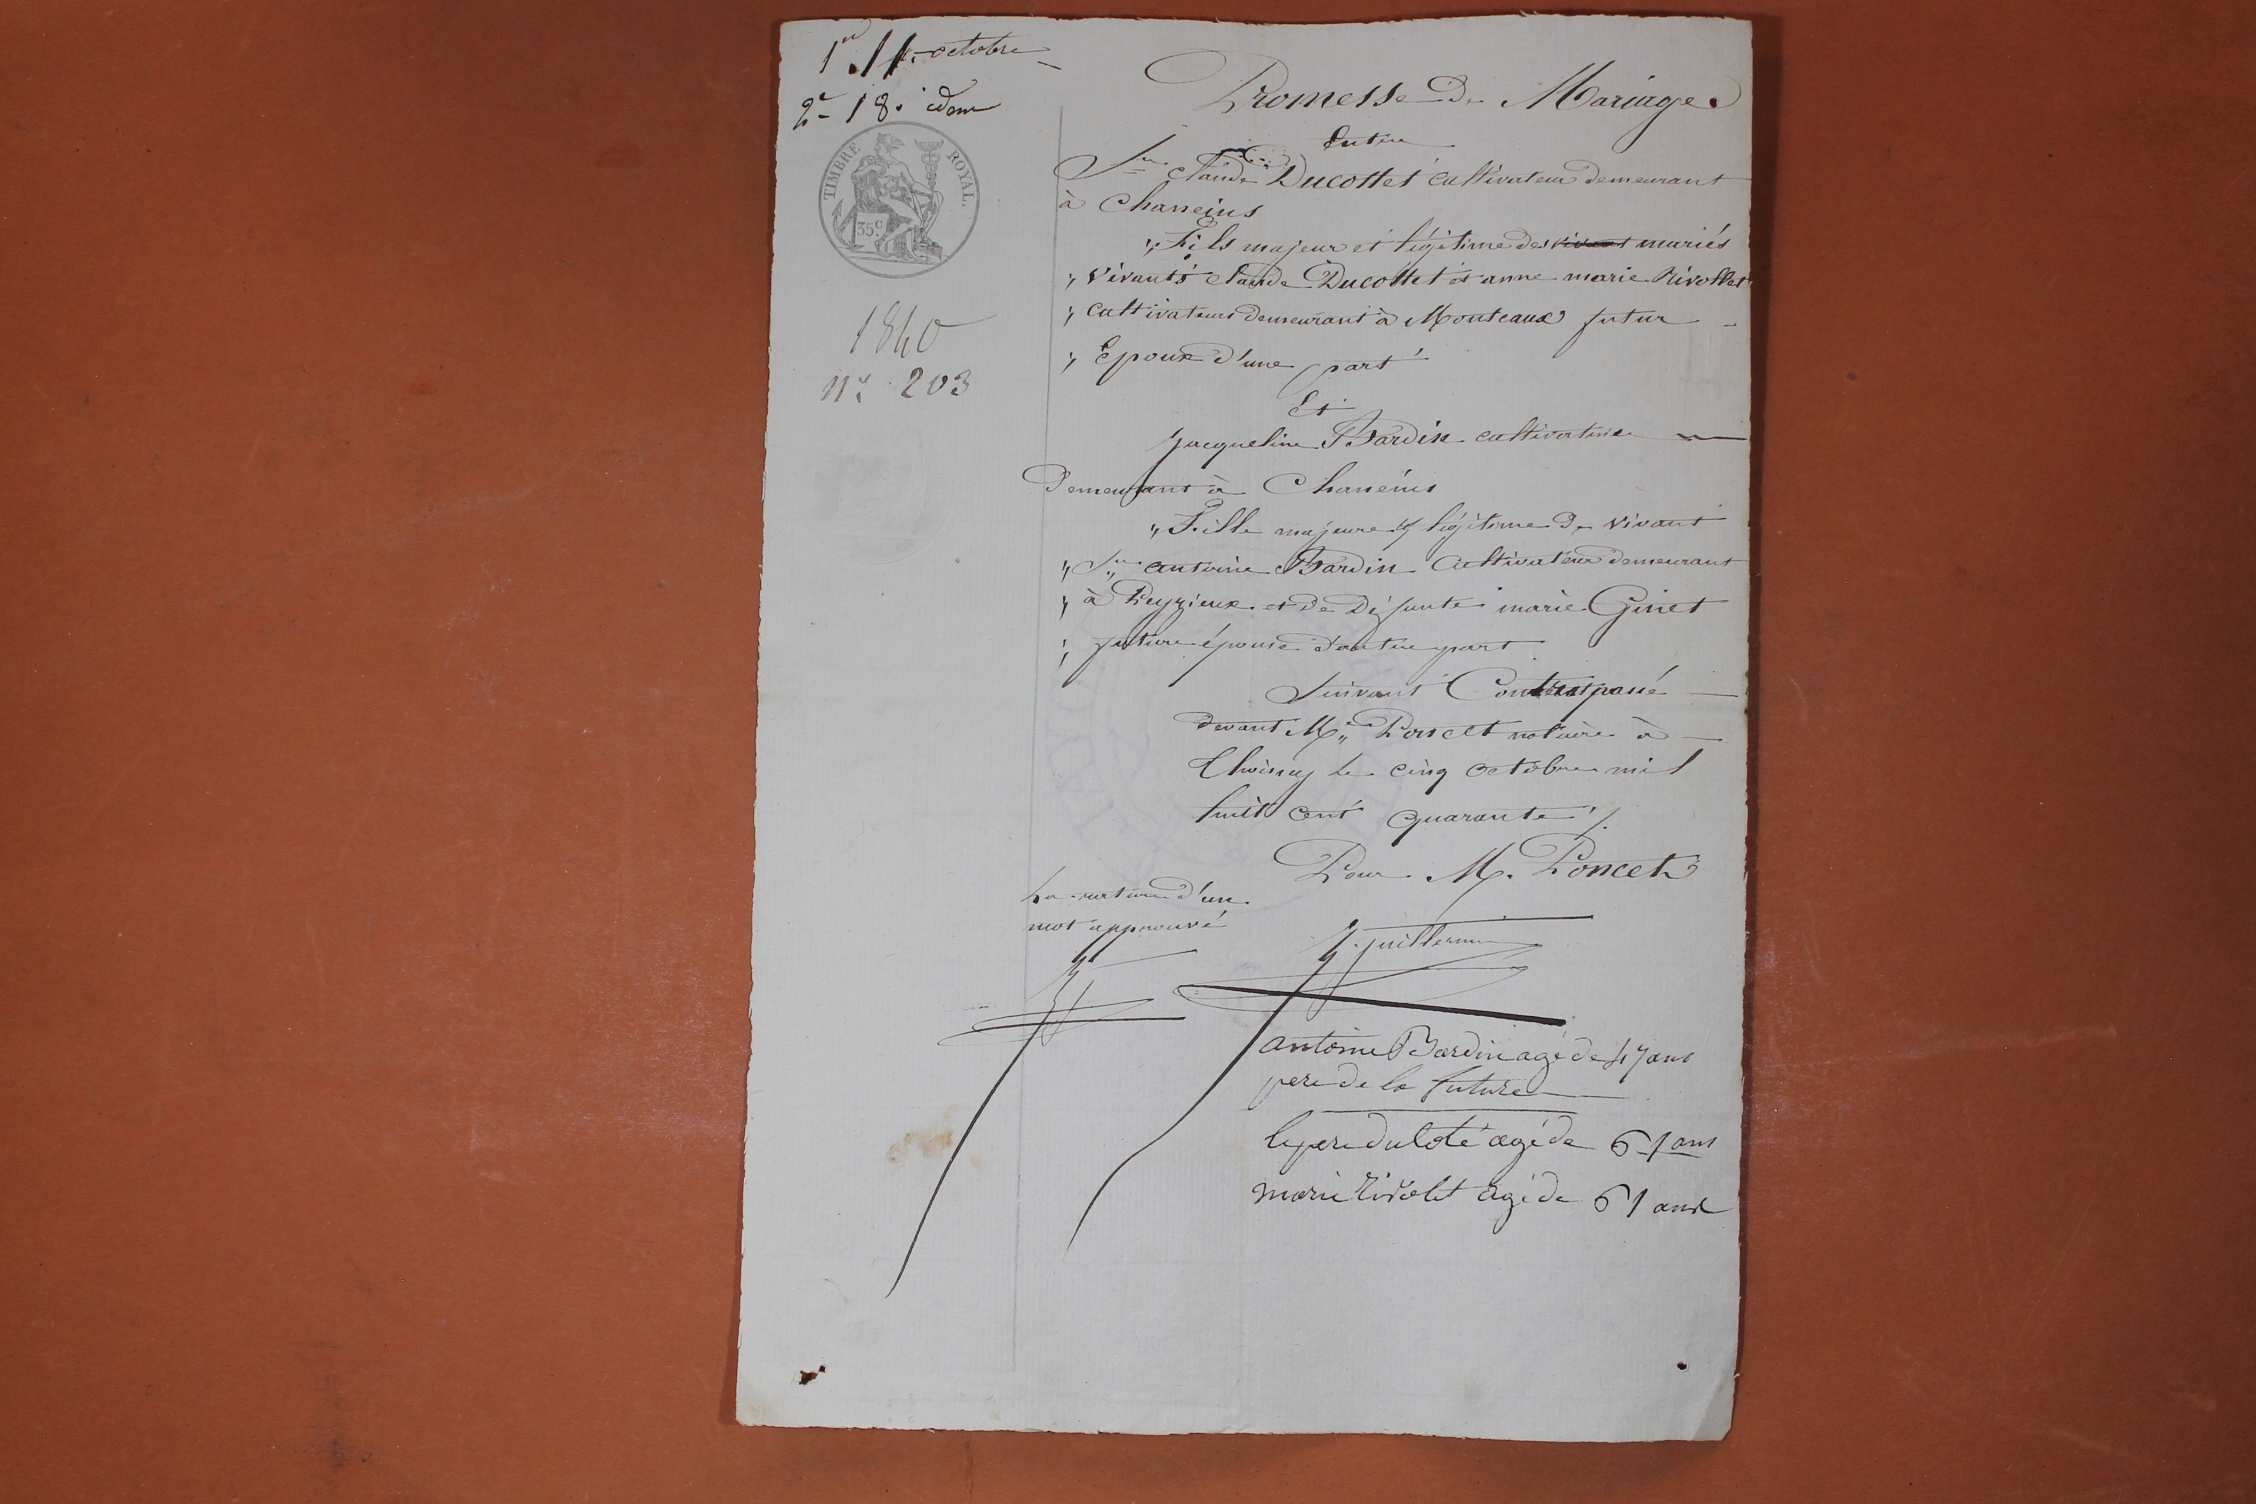 1er 11 octobre
2e 18 idem
TIMBRE ROYAL.
35c
1840
n° 203
Promesse De Mariage
Entre
Sr Claude Ducottet cultivateur demeurant
à Chaneins
" Fils majeur et légitime des vivant mariés
" vivants Claude Ducottet et anne marie Rivollet
" cultivateurs demeurant à Monteaux futur
" Epoux d'une part
Et
jacqueline Bardin cultivatrice
Demeurant à Chaneins
" Fille majeure et légitime De vivant
" Sr antoine Bardin Cultivateur demeurant
" à Peyzieux et De Défunte marie Ginet
" future épouse d'autre part
Suivant Contrat passé
devant Me Poncet notaire à
Thoissey le cinq octobre mil
huit cent quarante ./.
Pour M. Poncet
La rature d'un
mot approuvé
J. juillermin
antoine Bardin agé de 47 ans
pere de la future
le pere du coté agé de 61 ans
marie rivolet agé de 61 ans